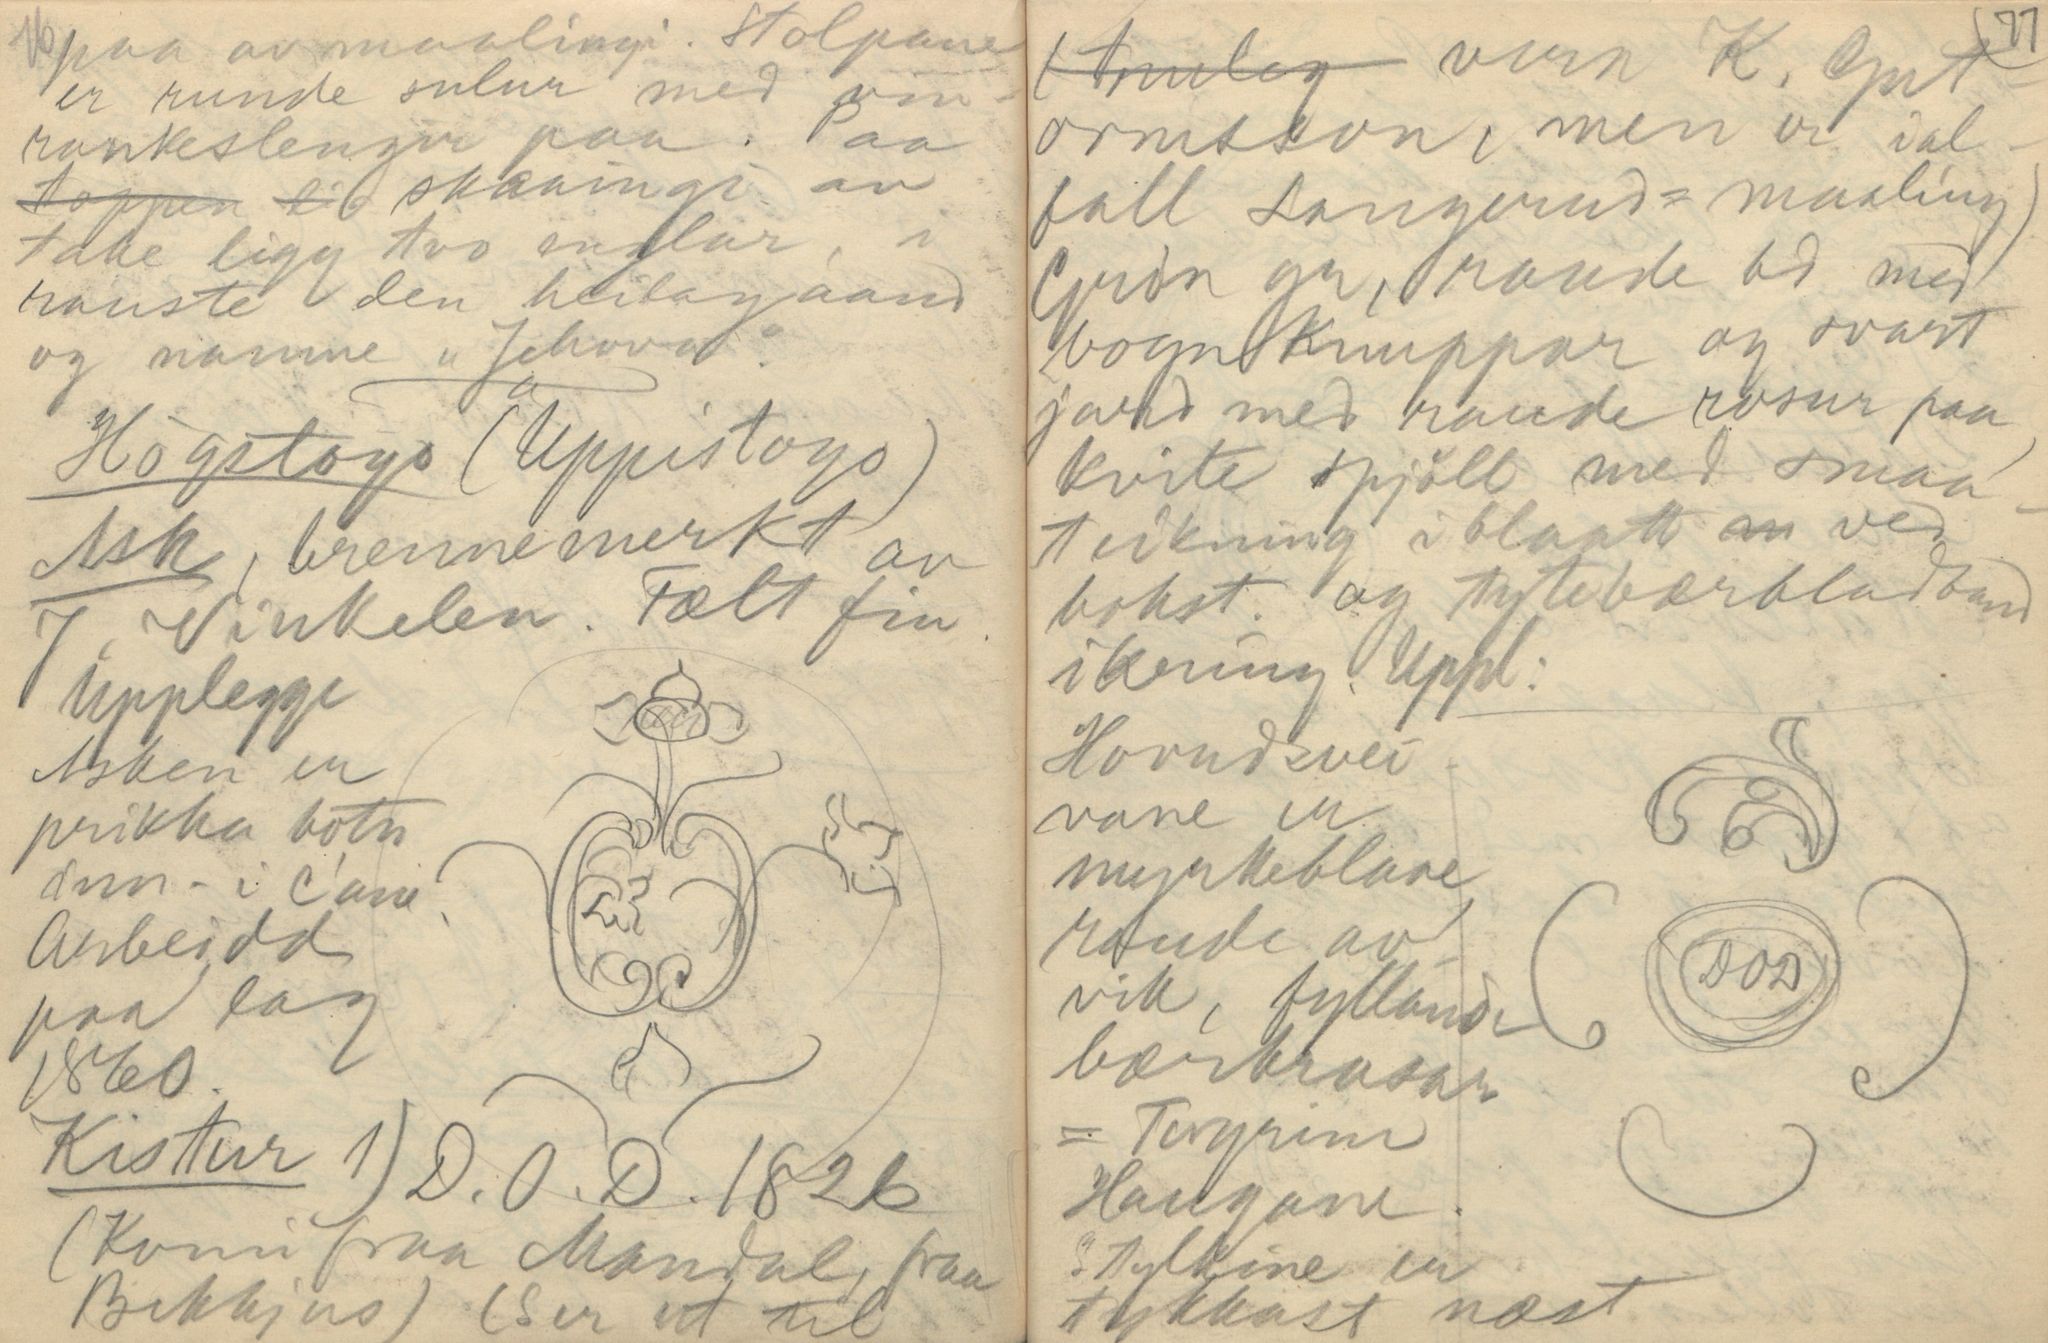 76
paa avmaalingi. Stolpane
er runde sulur med vin-
rankeslengjor paa. Paa
toppen til skraaingi av
take ligg tvo englar, i
rauste den heilag aand
og namne "Jehova".
Högstogo (Uppistogo)
Ask, brennemerkt av
J. Vinkelen. Fælt fin.
Upplegge
Asken er
prikka botn
inn - i
Arbeidd
paa lag
1860.
Kistur 1) D.O.D. 1826
(Komi fraa Mandal, fraa
Bekkjus) (Ser ut til
77
(truleg vera K. Gut-
ormsson, men er ial-
fall Sangerud=maaling)
Grön gr, raude bd med
vogn knuppar og svart
jard med raude rosur paa,
kvite spjöll med smaa-
teikning i blaatt ved
bokst. og tytebærbladband
ikring. Uppl:
Hovudsvei
vane er
myrkeblaae
raude av-
vik, fylland-
bærkrusar
= Torgrim
Haugane.
Stylkine er
tykkast næst
DOD